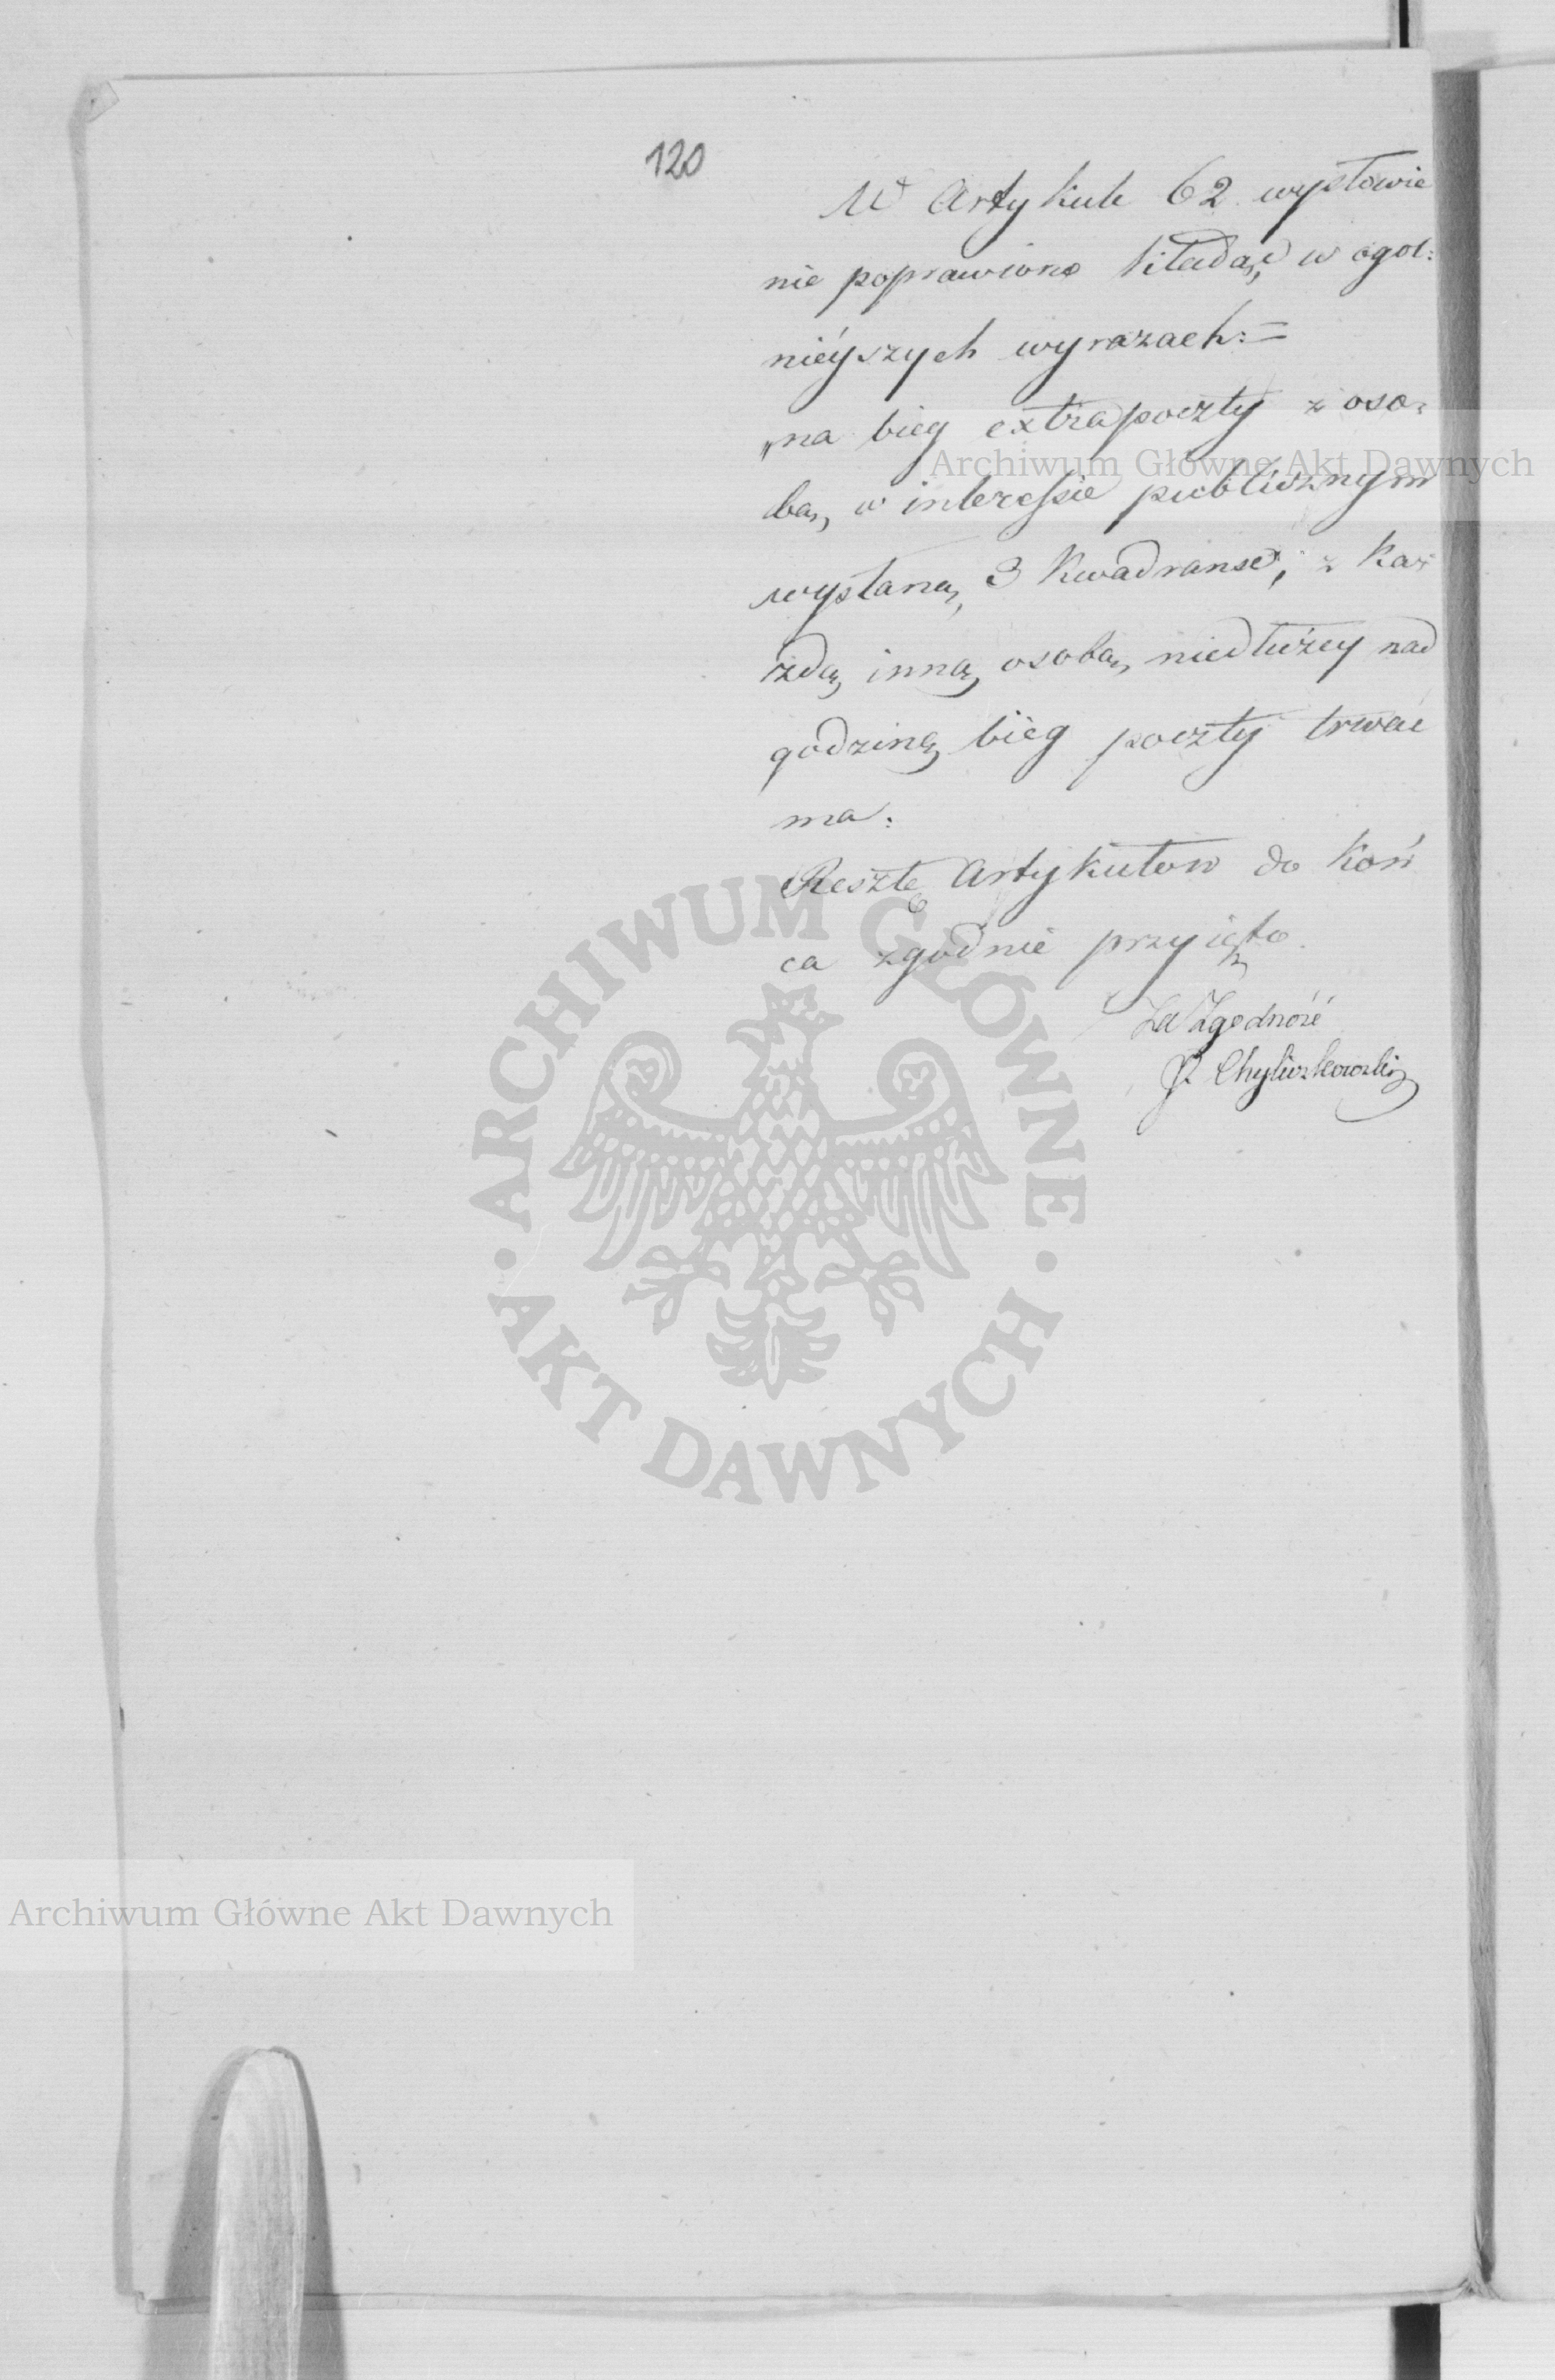 120
W Artykule 62 wysłowie
nie poprawiono kładąc w ogol:
nieyszych wyrazach:=
„na bieg extrapoczty z oso:
bą, w interessie publicznym
wysłaną, 3 kwadranse, z ka:
żdą inną osobą, niedłużey nad
godzinę bieg poczty trwać
ma:
Resztę Artykułow do koń
ca zgodnie przyięto.
Za Zgodność
Chyliczkowski
Archiwum Główne Akt Dawnych
ARCHIWUM GŁÓWNE · AKT DAWNYCH ·
Archiwum Główne Akt Dawnych